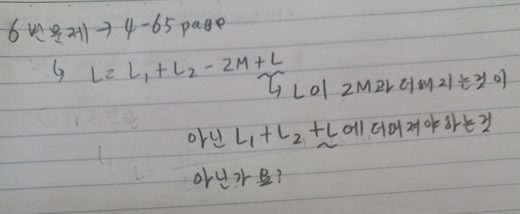 6번문제 → 4-65 page
↳ L = L₁ + L₂ - 2M + L
↳ L이 2M과 더해지는것이
아닌 L₁ + L₂ + L에 더머져야하는것
아닌가요?